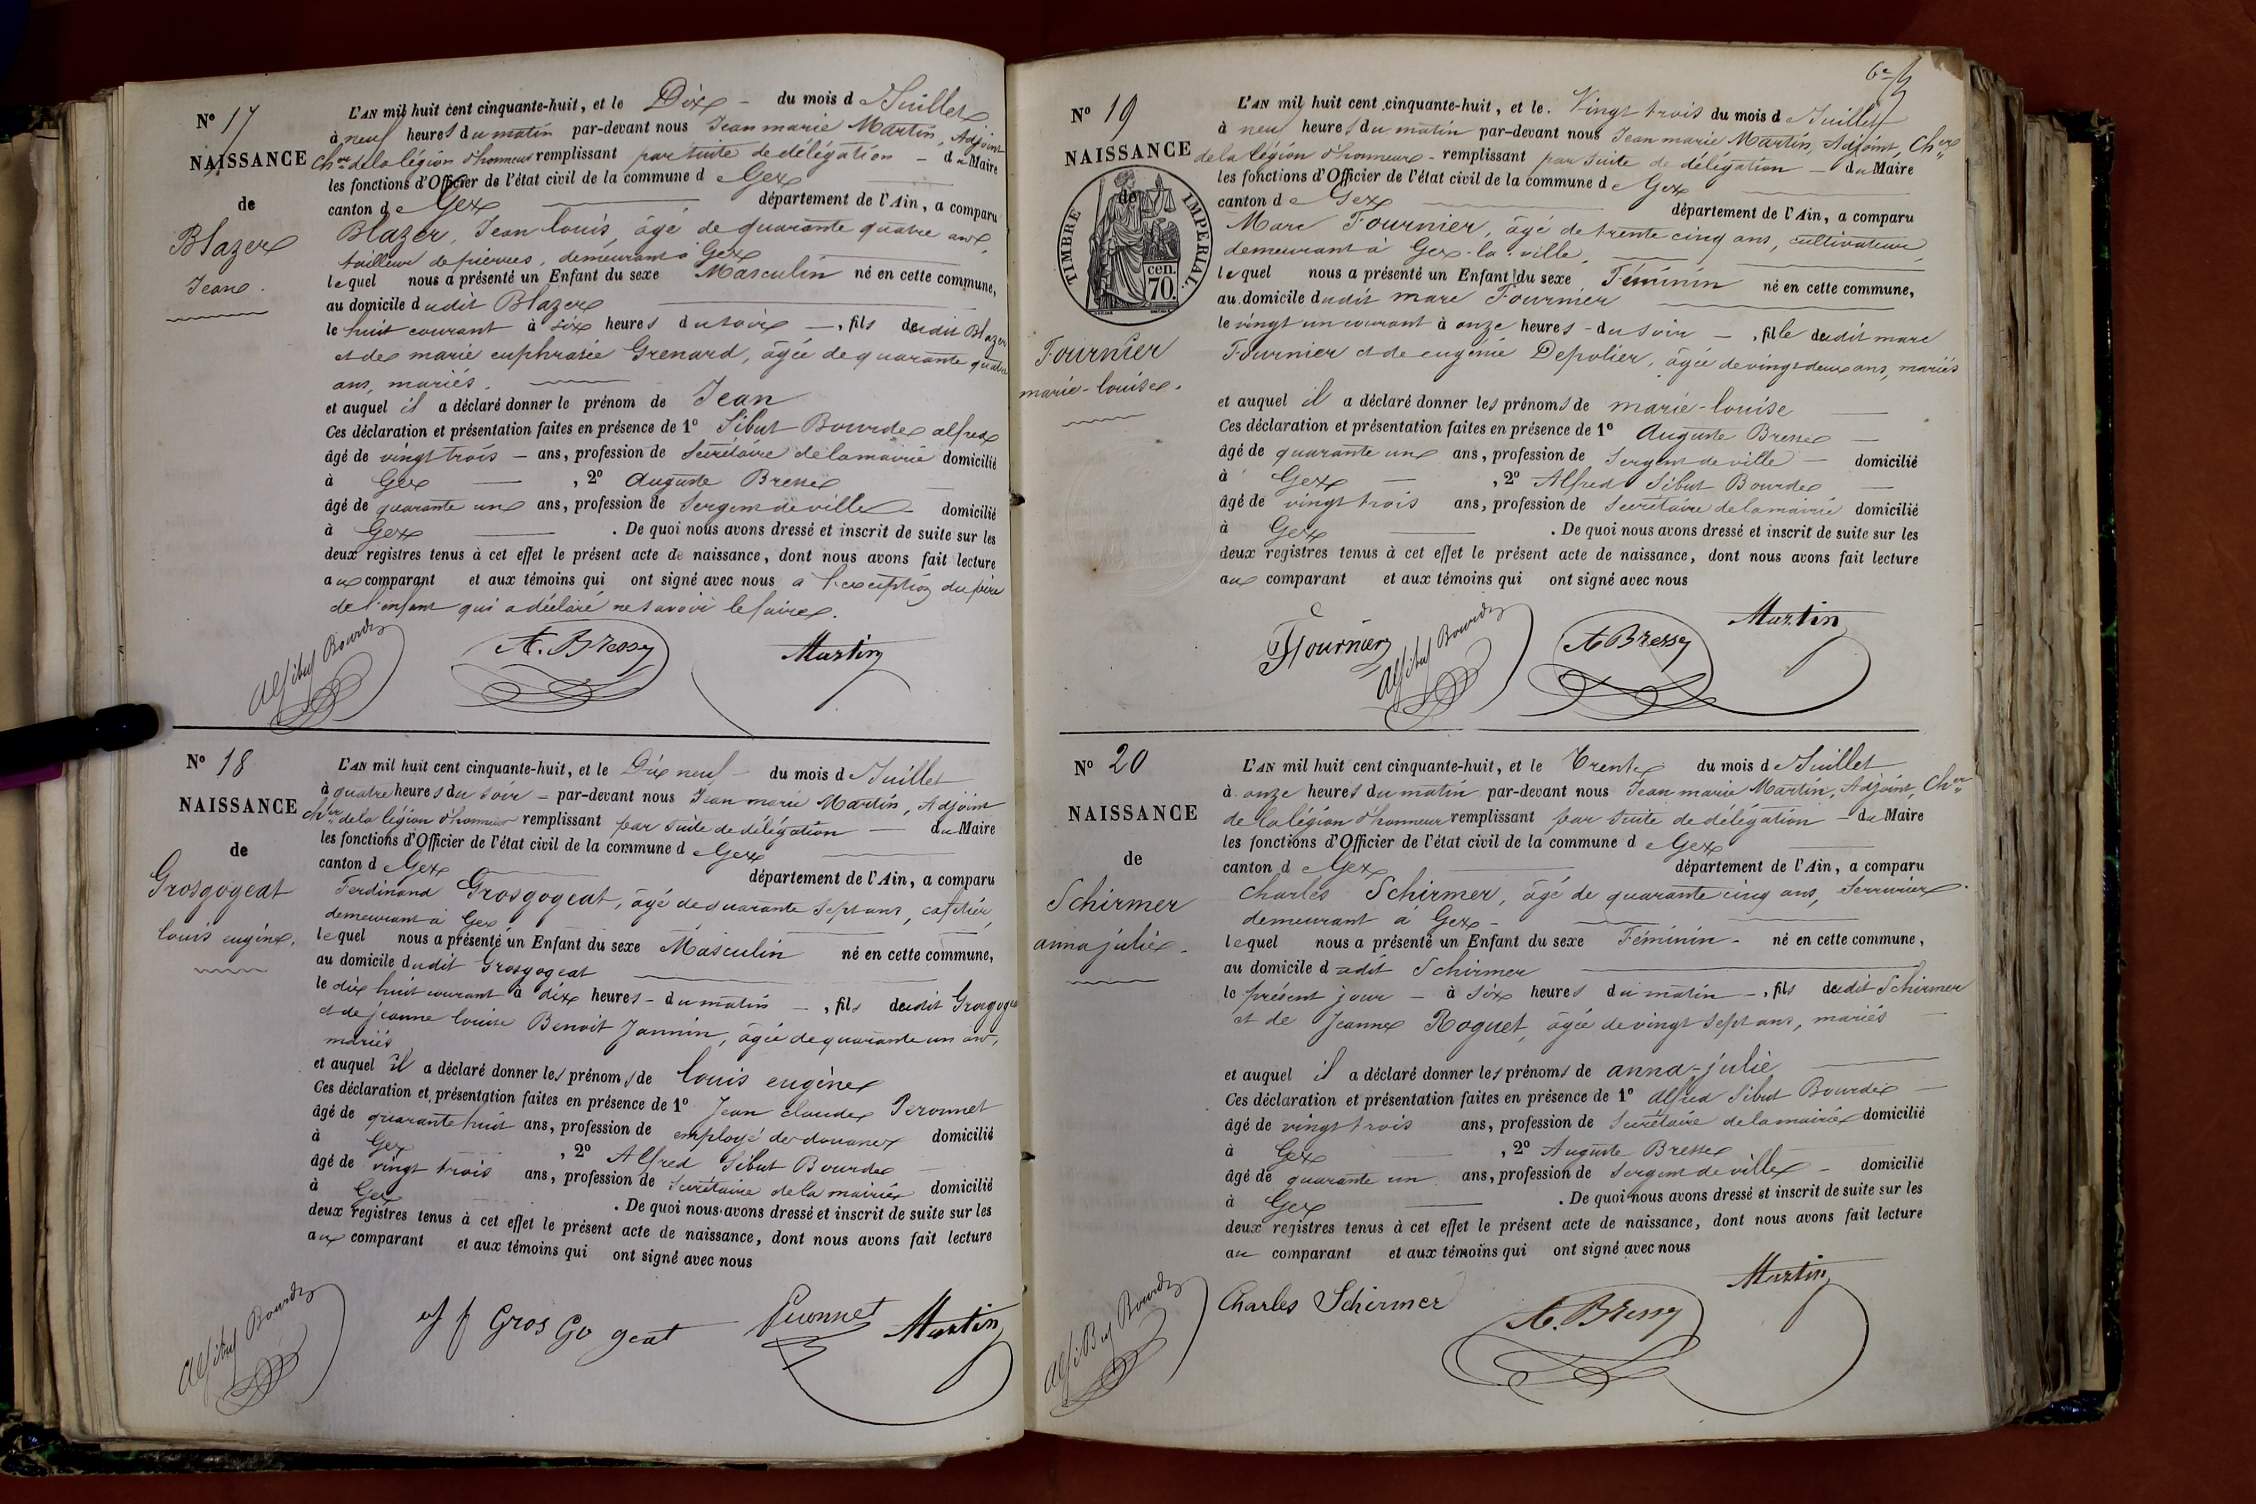 N° 17
NAISSANCE
de
Blazer
Jean.
L'AN mil huit cent cinquante-huit, et le Dix - du mois de Juillet
à neuf heures du matin par-devant nous Jean marie Martin, Adjoint
Cher de la légion d'honneur remplissant par suite de délégation - du Maire
les fonctions d'Officier de l'état civil de la commune de Gex
canton de Gex département de l'Ain, a comparu
Blazer, Jean louis, âgé de quarante quatre ans,
tailleur de pierres, demeurant à Gex
lequel nous a présenté un Enfant du sexe Masculin né en cette commune,
au domicile dudit Blazer
le huit courant à six heures du soir -, fils dudit Blazer
et de marie euphrasie Grenard, âgée de quarante quatre
ans, mariés.
et auquel il a déclaré donner le prénom de Jean
Ces déclaration et présentation faites en présence de 1° Sibut Bourde alfred
âgé de vingt trois - ans, profession de Secrétaire de la mairie domicilié
à Gex , 2° Auguste Bressy
âgé de quarante un ans, profession de Sergent de ville domicilié
à Gex . De quoi nous avons dressé et inscrit de suite sur les
deux registres tenus à cet effet le présent acte de naissance, dont nous avons fait lecture
aux comparant et aux témoins qui ont signé avec nous à l'exception du père
de l'enfant qui a déclaré ne savoir le faire.
Alf Sibut Bourde A. Bressy Martin
N° 18
NAISSANCE
de
Grosgogeat
louis eugène.
L'AN mil huit cent cinquante-huit, et le Dix neuf - du mois de Juillet
à quatre heures du soir - par-devant nous Jean marie Martin, Adjoint
Cher de la légion d'honneur remplissant par suite de délégation - du Maire
les fonctions d'Officier de l'état civil de la commune de Gex
canton de Gex département de l'Ain, a comparu
Ferdinand Grosgogeat, âgé de quarante sept ans, cafetier,
demeurant à Gex
lequel nous a présenté un Enfant du sexe Masculin né en cette commune,
au domicile dudit Grosgogeat
le dix huit courant à dix heures - du matin -, fils dudit Grosgogeat
et de jeanne louise Benoit Jannin, âgée de quarante un ans,
mariés
et auquel il a déclaré donner les prénoms de louis eugène
Ces déclaration et présentation faites en présence de 1° Jean claude Peronnet
âgé de quarante huit ans, profession de employé de douane domicilié
à Gex , 2° Alfred Sibut Bourde
âgé de vingt trois ans, profession de Secrétaire de la mairie domicilié
à Gex . De quoi nous avons dressé et inscrit de suite sur les
deux registres tenus à cet effet le présent acte de naissance, dont nous avons fait lecture
aux comparant et aux témoins qui ont signé avec nous
Alf Sibut Bourde f Gros Go geat Peronnet Martin
N° 19
NAISSANCE
de
TIMBRE IMPERIAL.
cen.
70.
Fournier
marie-louise.
L'AN mil huit cent cinquante-huit, et le. Vingt trois du mois de Juillet
à neuf heures du matin par-devant nous Jean marie Martin, Adjoint, Cher
de la légion d'honneur - remplissant par suite de délégation - du Maire
les fonctions d'Officier de l'état civil de la commune de Gex
canton de Gex département de l'Ain, a comparu
Marc Fournier, âgé de trente cinq ans, cultivateur,
demeurant à Gex-la-ville,
lequel nous a présenté un Enfant du sexe Féminin né en cette commune,
au domicile dudit marc Fournier
le vingt un courant à onze heures - du soir -, fille dudit marc
Fournier et de eugénie Depolier, âgée de vingt deux ans, mariés
et auquel il a déclaré donner les prénoms de marie-louise
Ces déclaration et présentation faites en présence de 1° Auguste Bressy
âgé de quarante un ans, profession de Sergent de ville - domicilié
à Gex , 2° Alfred Sibut Bourde
âgé de vingt trois ans, profession de Secrétaire de la mairie domicilié
à Gex . De quoi nous avons dressé et inscrit de suite sur les
deux registres tenus à cet effet le présent acte de naissance, dont nous avons fait lecture
aux comparant et aux témoins qui ont signé avec nous
Fournier Alf Sibut Bourde A Bressy Martin
N° 20
NAISSANCE
de
Schirmer
anna julie.
L'AN mil huit cent cinquante-huit, et le Trente du mois de Juillet
à onze heures du matin par-devant nous Jean marie Martin, Adjoint, Cher
de la légion d'honneur remplissant par suite de délégation - du Maire
les fonctions d'Officier de l'état civil de la commune de Gex
canton de Gex département de l'Ain, a comparu
charles Schirmer, âgé de quarante cinq ans, Serrurier.
demeurant à Gex -
lequel nous a présenté un Enfant du sexe Féminin - né en cette commune,
au domicile dudit Schirmer
le présent jour - à six heures du matin -, fils dudit Schirmer
et de Jeanne Roguet, âgée de vingt sept ans, mariés
et auquel il a déclaré donner les prénoms de anna-julie
Ces déclaration et présentation faites en présence de 1° Alfred Sibut Bourde
âgé de vingt trois ans, profession de Secrétaire de la mairie domicilié
à Gex , 2° Auguste Bressy
âgé de quarante un ans, profession de Sergent de ville - domicilié
à Gex . De quoi nous avons dressé et inscrit de suite sur les
deux registres tenus à cet effet le présent acte de naissance, dont nous avons fait lecture
au comparant et aux témoins qui ont signé avec nous
Alf Sibut Bourde Charles Schirmer A. Bressy Martin